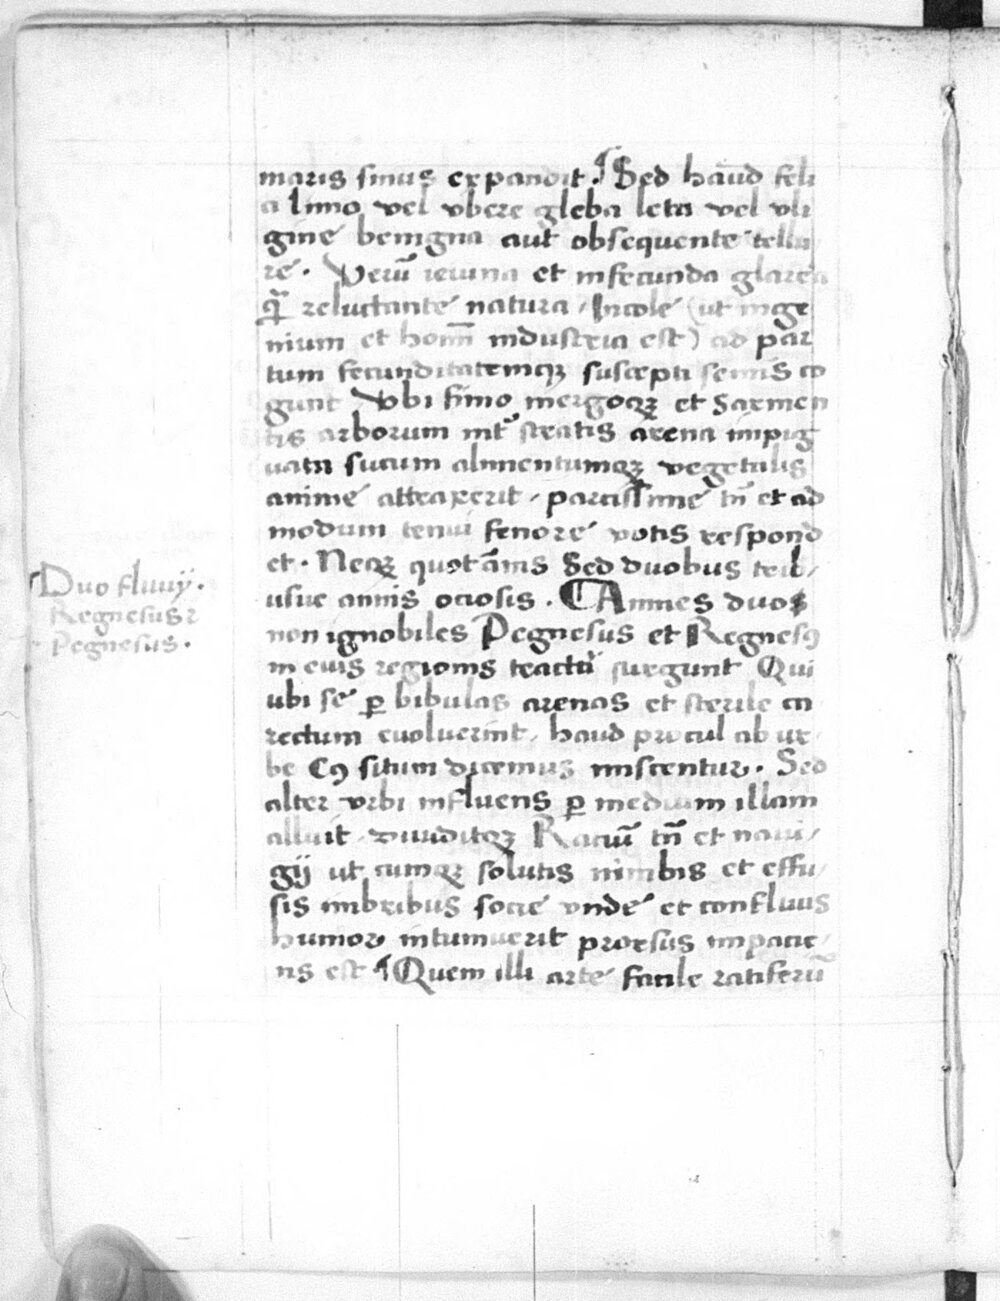 maris sinus expandit. Sed haud feli
a limo vel vbere gleba leta vel vli
gine benigna aut obsequente tellu
re. Verū ieiuna et infecunda glarea
reluctante natura. Incole (ut inge
nium et hom̄ industria est) ad par
tum fecunditatemqꝫ suscepti seminis co
gunt Vbi fimo mergoqꝫ et sarmen
tis arborum int͛ stratis arena impig
uata sucum alimentumqꝫ vegetalis
anime attraxerit, parcissime tn̄ et ad
modum tenui fenore votis respond
et. Neqꝫ quotānis Sed duobus trib,
usue annis ociosis. Amnes duo
non ignobiles Pegnesus et Regnesꝯ
in eius regionis tractū surgunt Qui
ubi se ꝑ bibulas arenas et sterile ca
rectum euoluerint, haud procul ab ur
be Cꝯ situm dicemus miscentur. Sed
alter vrbi influens ꝑ medium illam
alluit, diuiditqꝫ Raciū tn̄ et naui,
gij ut cumqꝫ solutis nimbis et effu,
sis imbribus socie vnde et confluus
humor intumuerit prorsus impacie,
ns est Quem illi arte facile ratiferū
Duo fluuij.
Regnesus ⁊
Pegnesus.